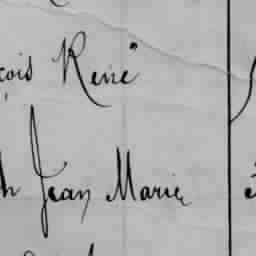 çois René
h Jean Marie